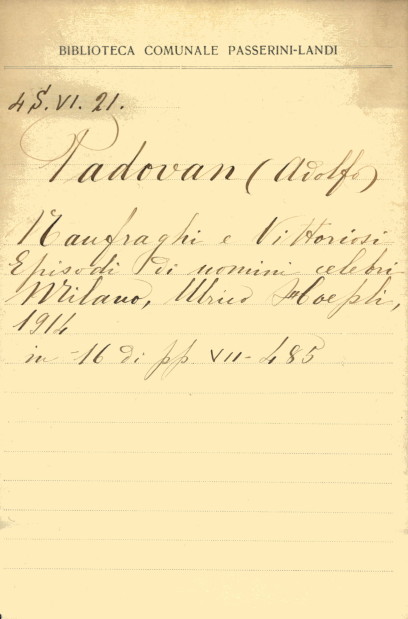 BIBLIOTECA COMUNALE PASSERINI-LANDI
4S.VI.21.
Padovan (Adolfo)
Naufraghi e Vittoriosi
Episodi di uomini celebri
Milano, Ulrico Hoepli,
1914
in-16 di pp VII-485